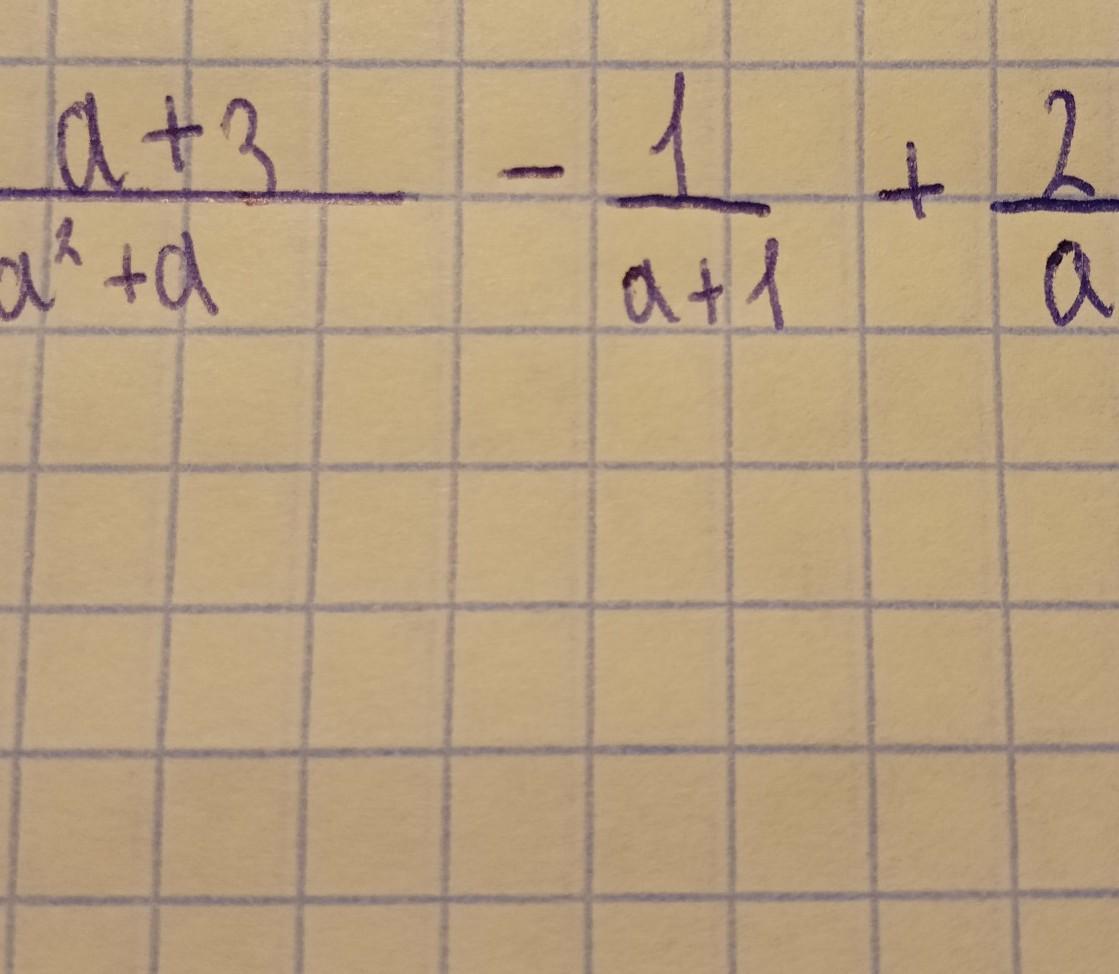 (a + 3)/(a² + a) - 1/(a + 1) + 2/a